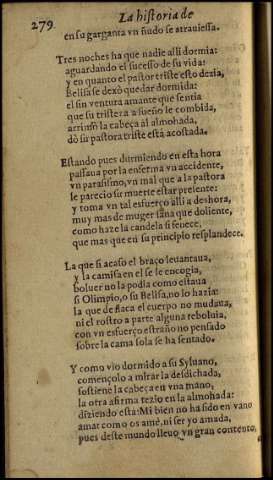 279
La historia de
en su garganta vn ñudo se atrauiessa.
Tres noches ha que nadie alli dormia:
aguardando el sucesso de su vida:
y en quanto el pastor triste esto dezia,
Belisa se dexò quedar dormida:
el sin ventura amante que sentia
que su tristeza a sueño le combida,
arrimò la cabeça al almohada,
dò su pastora triste està acostada.
Estando pues durmiendo en esta hora
passaua por la enferma vn accidente,
vn parasismo, vn mal que a la pastora
le parecio su muerte estar presente:
y toma vn tal esfuerço alli a deshora,
muy mas de muger sana que doliente,
como haze la candela si fenece,
que mas que en su principio resplandece.
La que si acaso el braço leuantaua,
y la camisa en el se le encogia,
boluer no la podia como estaua
si Olimpio, o su Belisa, no lo hazia:
la que de flaca el cuerpo no mudaua,
ni el rostro a parte alguna reboluia,
con vn esfuerço estraño no pensado
sobre la cama sola se ha sentado.
Y como vio dormido a su Syluano,
començolo a mirar la desdichada,
sostiene la cabeça en vna mano,
la otra afirma rezio en la almohada:
diziendo està: Mi bien no ha sido en vano
amar como os amè, ni ser yo amada,
pues deste mundo lleuo vn gran contento,